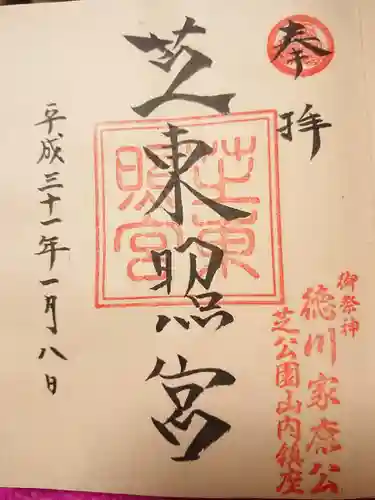 奉拝
御祭神
徳川家康公
芝公園山内鎮座
芝東照宮
芝東照宮
平成三十一年一月八日